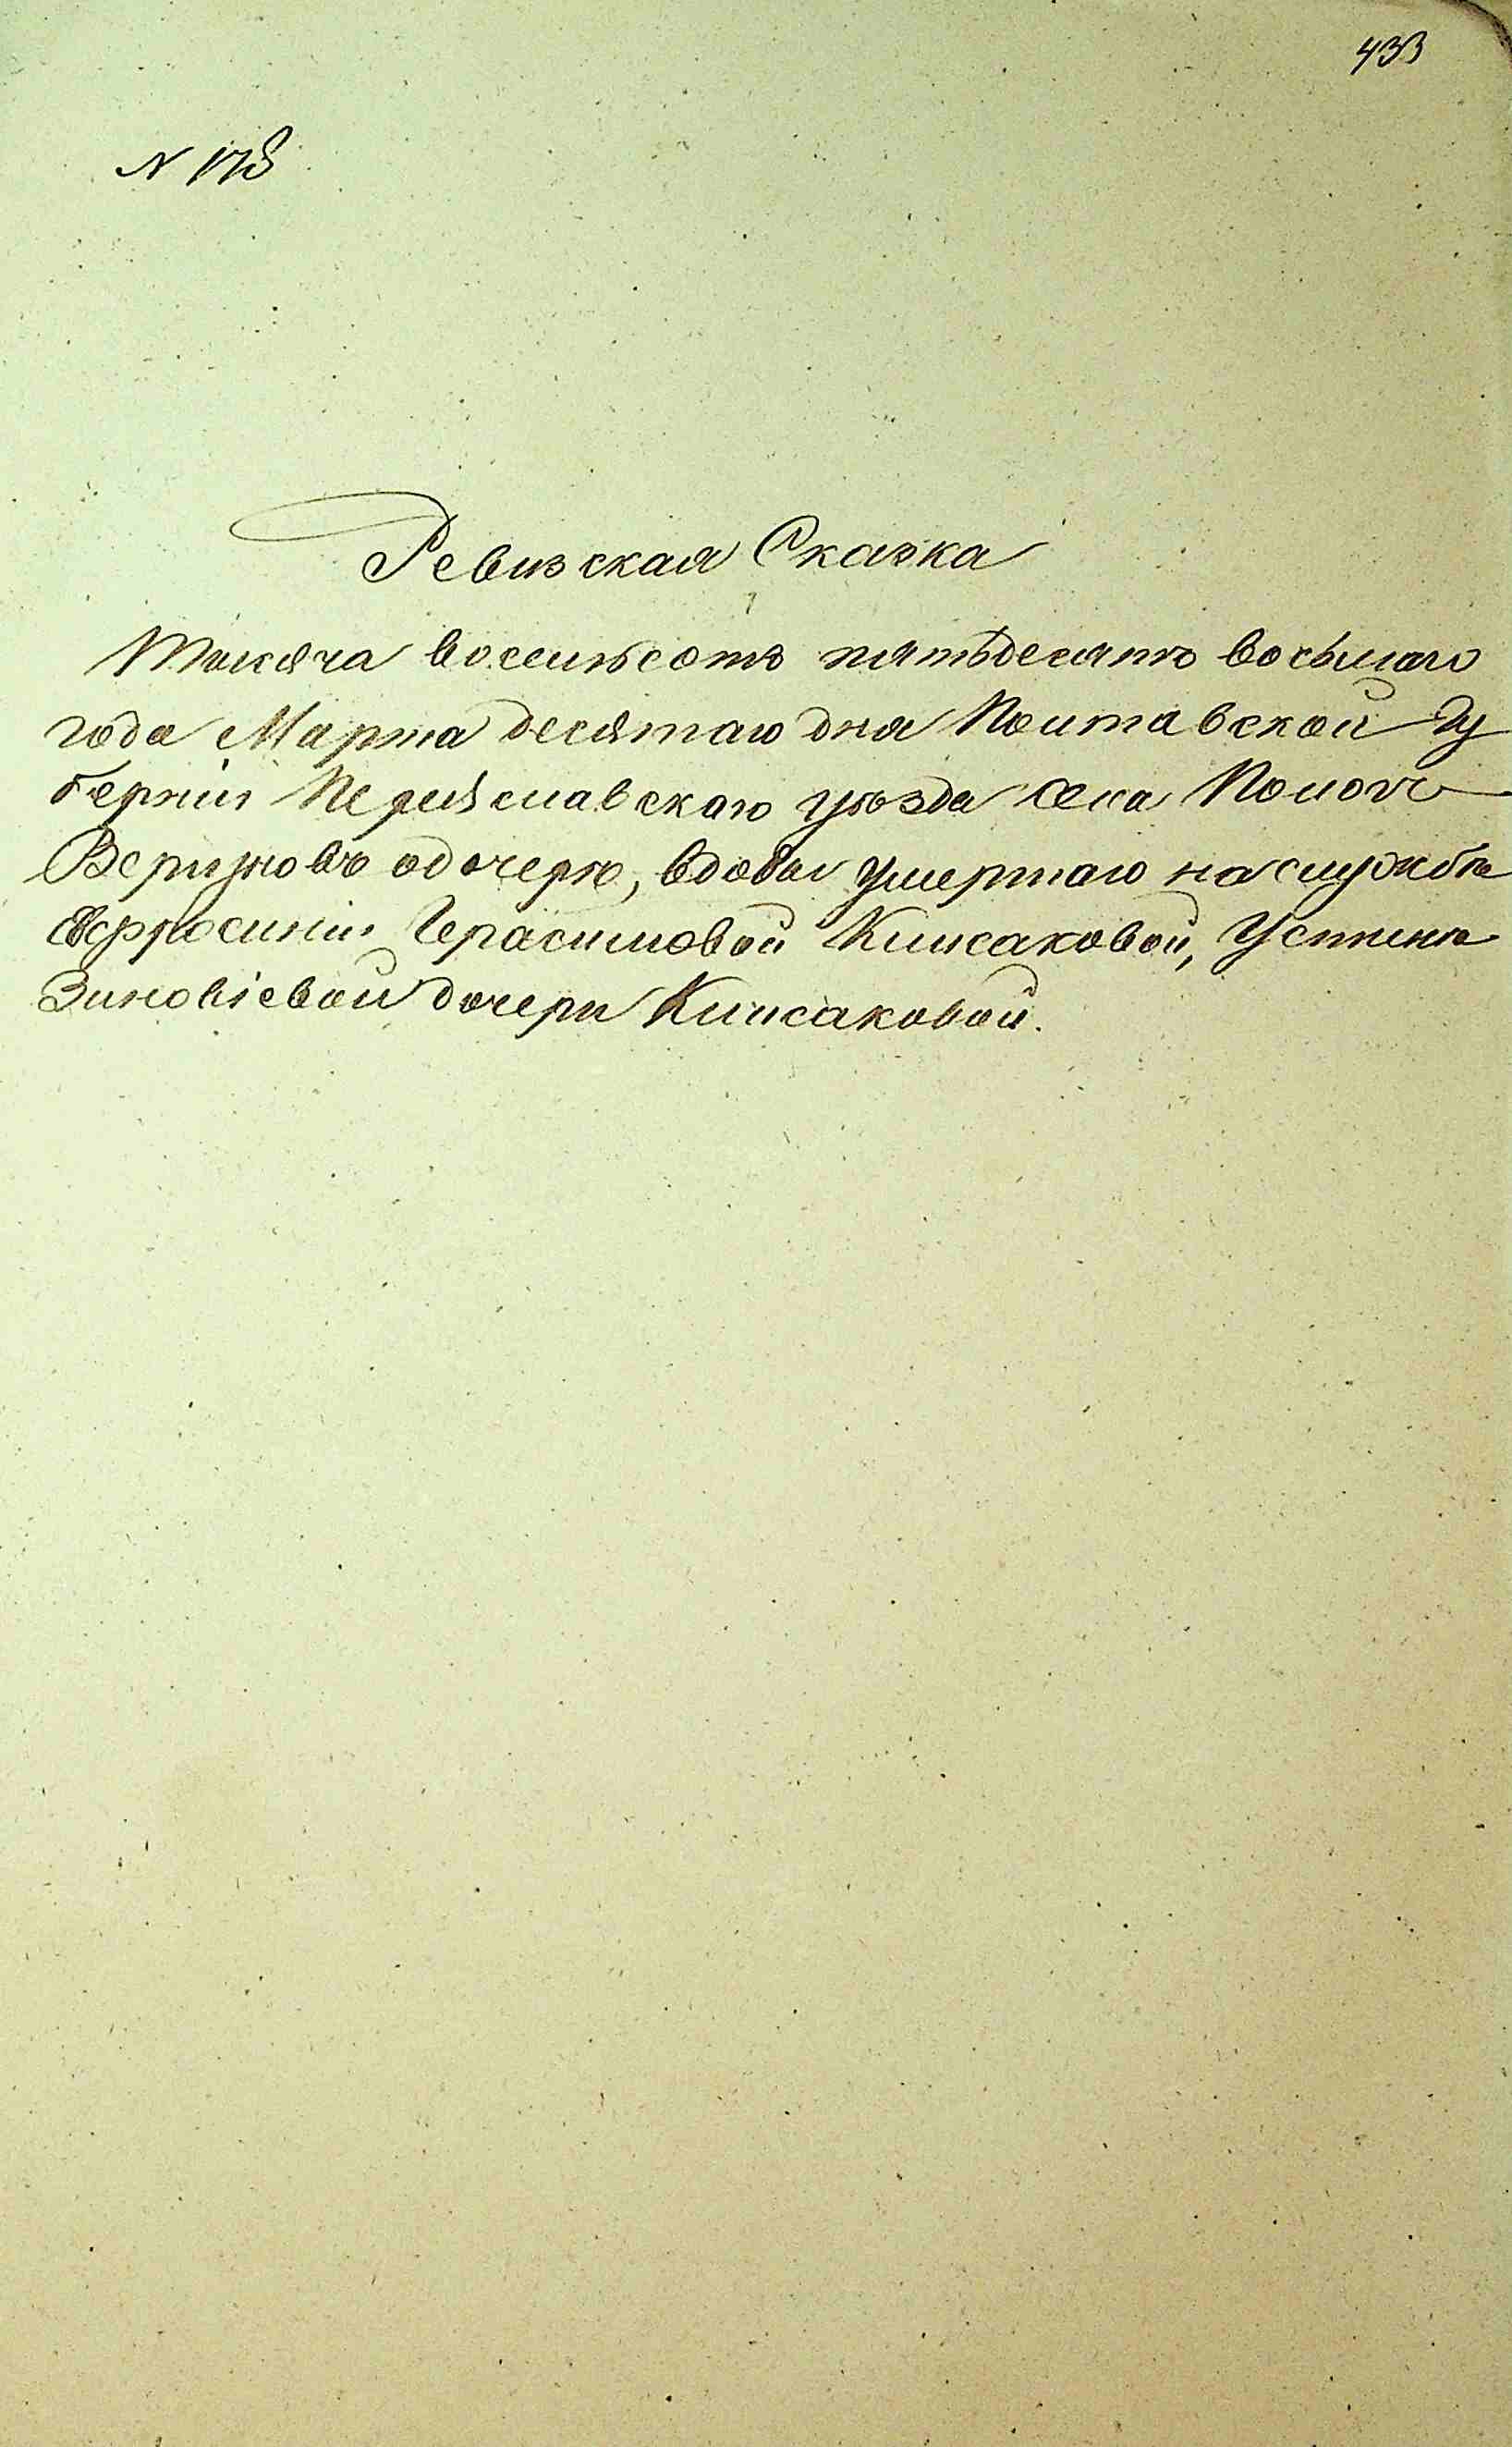 433
N 178
Ревизская Сказка
Тысяча восемьсотъ пятьдесятъ восьмаго
года Марта десятаго дня Полтавской Гу
берніи Переяславскаго уѣзда Села Пологъ
Вергуновъ о дочерѣ, вдовы умершаго на службѣ
Евфросиніи Герасимовой Кипсаковой, Устинѣ
Зиновіевой дочери Кипсаковой.